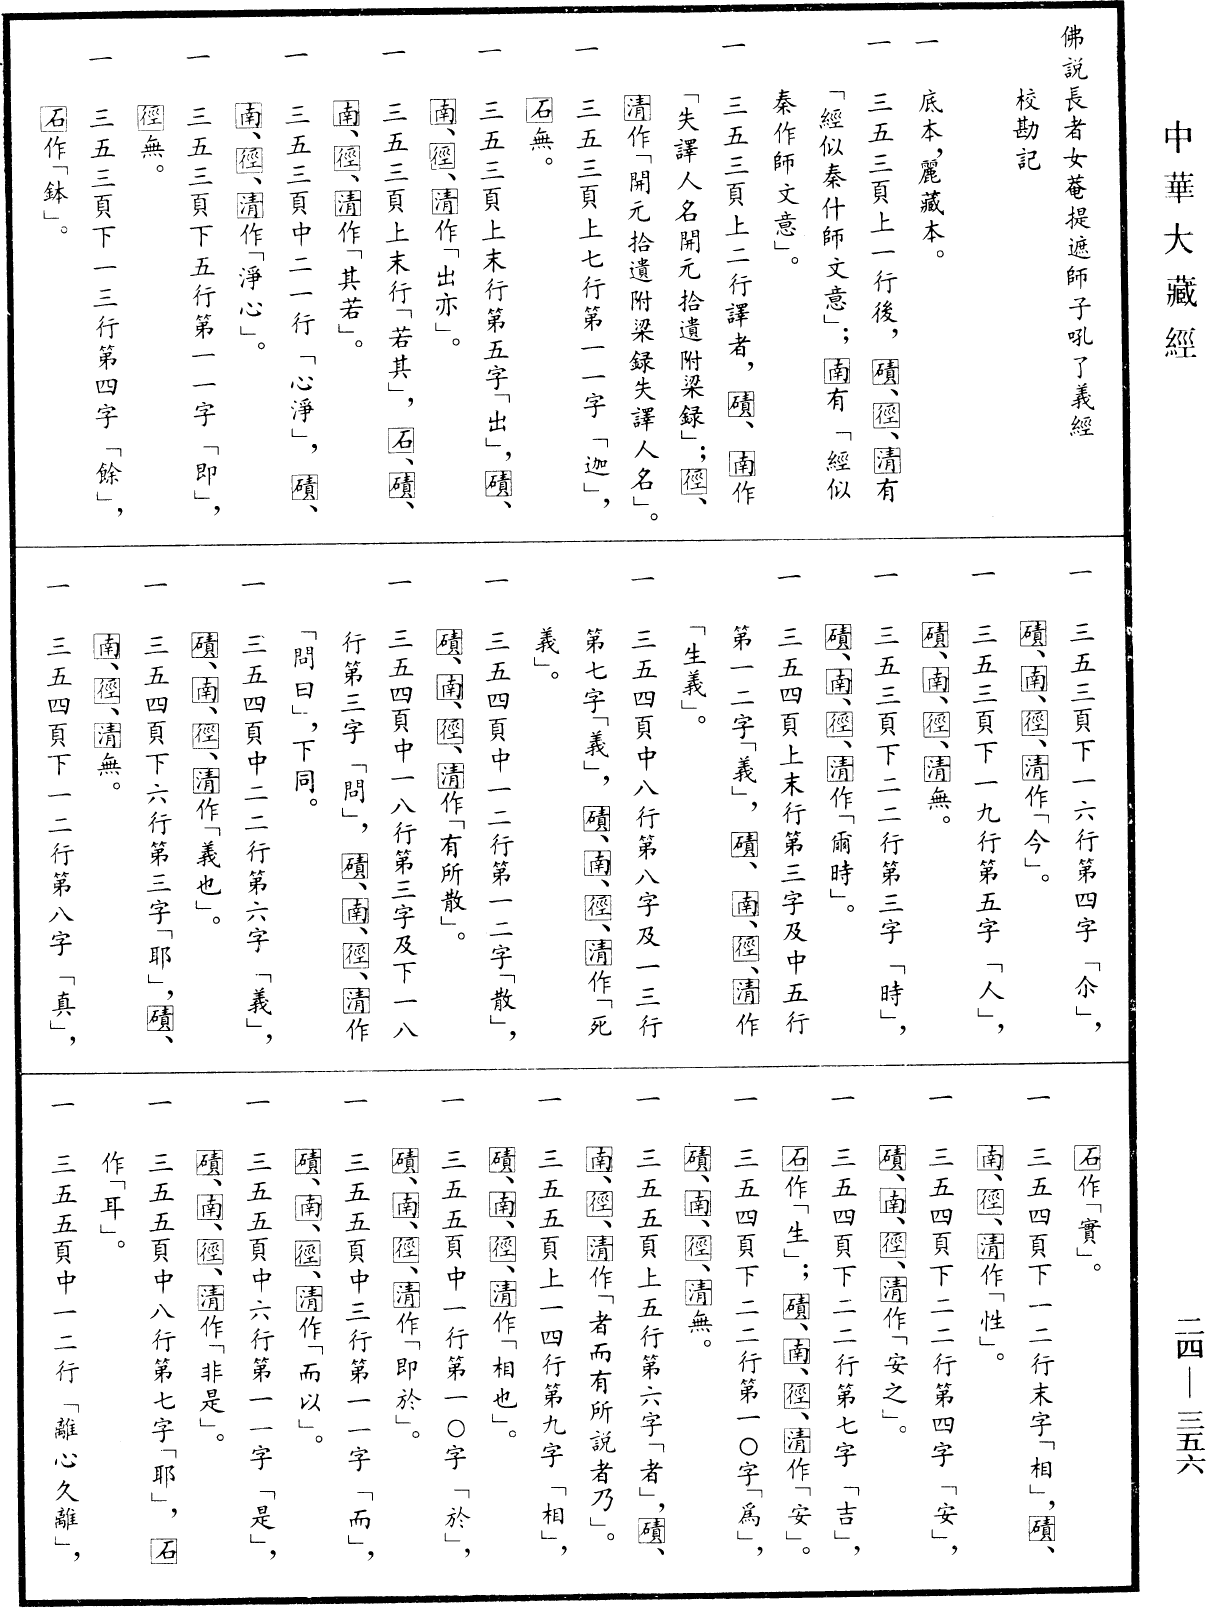 中華大藏經
佛說長者女菴提遮師子吼了義經
校勘記
一　底本，麗藏本。
一　三五三頁上一行後，磧、徑、清有
「經似秦什師文意」；南有「經似
秦作師文意」。
一　三五三頁上二行譯者，磧、南作
「失譯人名開元拾遺附梁録」；徑、
清作「開元拾遺附梁録失譯人名」。
一　三五三頁上七行第一一字「迦」，
石無。
一　三五三頁上末行第五字「出」，磧、
南、徑、清作「出亦」。
一　三五三頁上末行「若其」，石、磧、
南、徑、清作「其若」。
一　三五三頁中二一行「心淨」，磧、
南、徑、清作「淨心」。
一　三五三頁下五行第一一字「即」，
徑無。
一　三五三頁下一三行第四字「餘」，
石作「鉢」。
一　三五三頁下一六行第四字「尒」，
磧、南、徑、清作「今」。
一　三五三頁下一九行第五字「人」，
磧、南、徑、清無。
一　三五三頁下二二行第三字「時」，
磧、南、徑、清作「爾時」。
一　三五四頁上末行第三字及中五行
第一二字「義」，磧、南、徑、清作
「生義」。
一　三五四頁中八行第八字及一三行
第七字「義」，磧、南、徑、清作「死
義」。
一　三五四頁中一二行第一二字「散」，
磧、南、徑、清作「有所散」。
一　三五四頁中一八行第三字及下一八
行第三字「問」，磧、南、徑、清作
「問曰」，下同。
一　三五四頁中二二行第六字「義」，
磧、南、徑、清作「義也」。
一　三五四頁下六行第三字「耶」，磧、
南、徑、清無。
一　三五四頁下一二行第八字「真」，
石作「實」。
一　三五四頁下一二行末字「相」，磧、
南、徑、清作「性」。
一　三五四頁下二二行第四字「安」，
磧、南、徑、清作「安之」。
一　三五四頁下二二行第七字「吉」，
石作「生」；磧、南、徑、清作「安」。
一　三五四頁下二二行第一〇字「爲」，
磧、南、徑、清無。
一　三五五頁上五行第六字「者」，磧、
南、徑、清作「者而有所説者乃」。
一　三五五頁上一四行第九字「相」，
磧、南、徑、清作「相也」。
一　三五五頁中一行第一〇字「於」，
磧、南、徑、清作「即於」。
一　三五五頁中三行第一一字「而」，
磧、南、徑、清作「而以」。
一　三五五頁中六行第一一字「是」，
磧、南、徑、清作「非是」。
一　三五五頁中八行第七字「耶」，石
作「耳」。
一　三五五頁中一二行「離心久離」，
二四—三五六